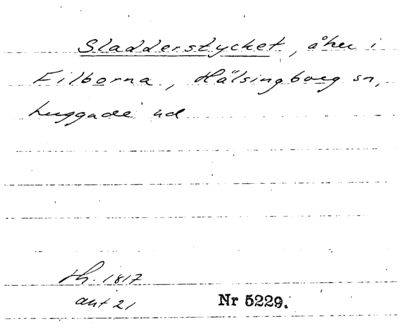 Sladderstycket, åker i
Filborna, Hälsingborg sn,
huggade ud
th. 1817
akt 21
Nr 5229.